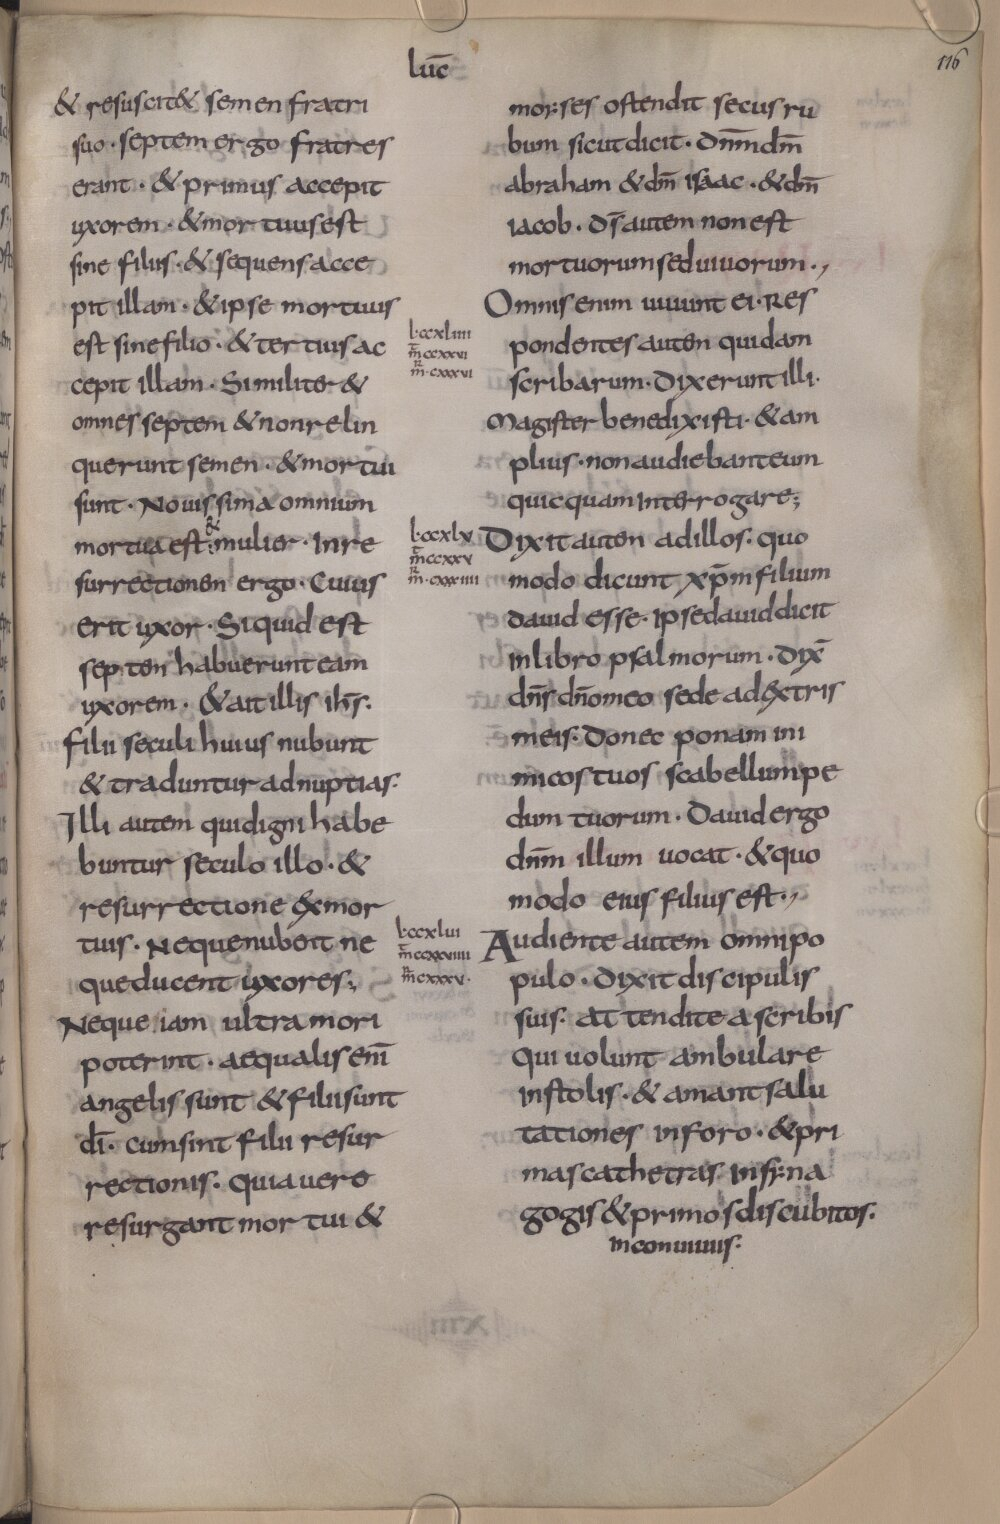 luc̄
116
& resuscit& semen fratri
suo · septem ergo fratres
erant · & primus accepit
uxorem · & mortuus est
sine filiis · & sequens acce
pit illam · & ipse mortuus
est sine filio · & tertius ac
cepit illam · Similiter &
omnes septem & non relin
querunt semen · & mortui
sunt · Nouissima omnium
mortua est & mulier · In re
surrectionen ergo · Cuius
erit uxor · Siquid est
septen habuerunt eam
uxorem · & ait illis ihs̄ ·
filii seculi huius nubunt
& traduntur ad nuptias ·
Illi autem qui digni habe
buntur seculo illo · &
resurrectione ex mor
tuis · Neque nubent ne
que ducent uxores ;
Neque iam ultra mori
poterint · aequalis enī
angelis sunt & filii sunt
dī · cum sint filii resur
rectionis · quia uero
resurgant mortui &
l · ccxliii
m̄ ccxxvi
m̄ · cxxxvi
l · ccxlv
m̄ ccxxv
m̄ · cxxxiiii
l · ccxlvi
m̄ ccxxviiii
m̄ cxxxv ·
moyses ostendit secus ru
bum sicut dicit · dn̄m dm̄
abraham & dm̄ isaac · & dm̄
iacob · ds̄ autem non est
mortuorum sed uiuorum ·,
Omnis enim uiuunt ei · Res
pondentes auten quidam
scribarum · dixerunt illi ·
Magister bene dixisti · & am
plius · non audiebant eum
quicquam interrogare ;
Dixit auten ad illos · quo
modo dicunt xp̄m filium
dauid esse · ipse dauid dicit
in libro psalmorum · dix̄
dn̄s dn̄o meo sede ad dextris
meis · donec ponam ini
micos tuos scabellum pe
dum tuorum · Dauid ergo
dn̄m illum uocat · & quo
modo eius filius est ·,
Audiente autem omni po
pulo · dixit discipulis
suis · attendite a scribis
qui uolunt ambulare
in stolis · & amant salu
tationes in foro · & pri
mas cathetras in syna
gogis & primos discubitos ·
in conuiuiis ·